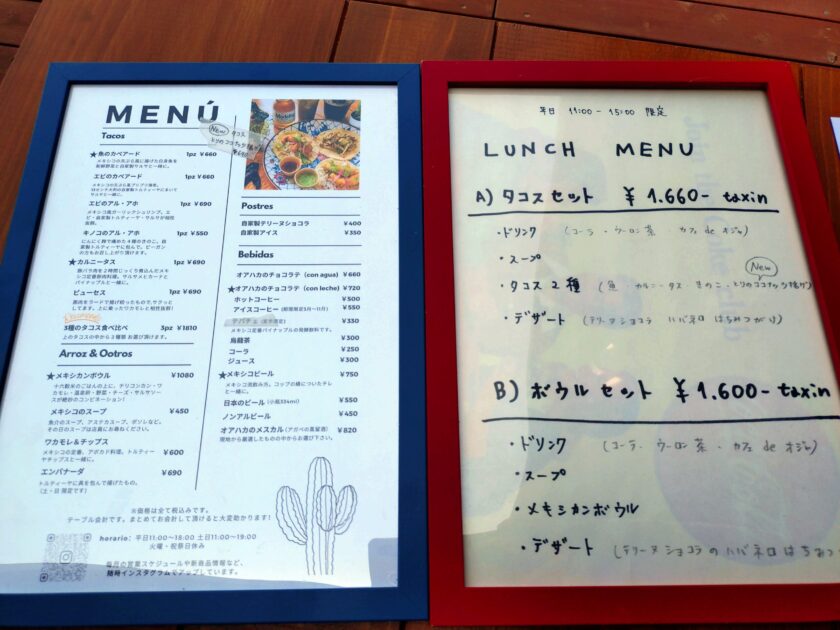 MENÚ
Tacos
New タコス
¥690
★魚のカベアード 1pz ¥660
エビのカベアード 1pz ¥660
エビのアル・アホ 1pz ¥690
メキシコ風ガーリックシュリンプ。エ
ビ・自家製トルティーヤ・サルサが相性
抜群。
キノコのアル・アホ 1pz ¥550
にんにく醤で痛めた4種のきのこ。自
家製トルティーヤに包んで。ビーガン
の方もお召し上がり頂けます。
★カルニータス 1pz ¥690
豚バラ肉を2時間じっくり煮込んだメキ
シコ定番豚肉料理。サルサメヒカーナと
パイナップルと一緒に。
ピューセス 1pz ¥690
豚肉をラードで揚げ絞ったもので、サクッと
してます。上に乗ったワカモレと相性抜群!
3種のタコス食べ比べ 3pz ¥1810
上のタコスの中から3種類 お選び頂けます。
Arroz & Ootros
★メキシカンボウル ¥1080
十六穀米のごはんの上に、チリコンカン・ワ
カモレ・温泉卵・野菜・チーズ・サルサソー
スが絶妙のコンビネーション!
メキシコのスープ ¥450
魚介のスープ、アステカスープ、ポソレなど。
その日のスープは店員にお尋ねください。
ワカモレ&チップス ¥600
メキシコの定番、アボカド料理。トルティー
ヤチップスと一緒に。
エンパナーダ ¥690
トルティーヤに具を包んで揚げたもの。
(土・日 限定です)
Postres
自家製テリーヌショコラ ¥400
自家製アイス ¥350
Bebidas
オアハカのチョコラテ (con agua) ¥660
★オアハカのチョコラテ (con leche) ¥720
ホットコーヒー ¥500
アイスコーヒー (期間限定5月〜11月) ¥550
テパチェ ¥330
メキシコ定番パイナップルの発酵飲料です。
烏龍茶 ¥300
コーラ ¥250
ジュース ¥300
★メキシコビール ¥750
メキシコ流飲み方。コップの縁についたチレ
と一緒に。
日本のビール (小瓶334ml) ¥550
ノンアルビール ¥450
オアハカのメスカル (アガベの蒸留酒) ¥820
現地から厳選したものの中からお選び下さい。
※価格は全て税込みです。
テーブル会計です。まとめてお会計して頂けると大変助かります!
horario: 平日11:00〜18:00 土日11:00〜19:00
火曜・祝祭日休み
毎月の営業スケジュールや新商品情報など、
随時インスタグラムでアップしています。
平日 11:00 - 15:00 限定
LUNCH MENU
A) タコスセット ¥1.660- taxin
・ドリンク (コーラ・ウーロン茶・カフェ de オジャ)
・スープ
New
・タコス2種 (魚・カルニータス・きのこ・とりのココナッツ揚げ)
・デザート (テリーヌショコラ ハバネロ はちみつがけ)
B) ボウルセット ¥1.600- taxin
・ドリンク (コーラ・ウーロン茶・カフェ de オジャ)
・スープ
・メキシカンボウル
・デザート (テリーヌショコラのハバネロはちみつ